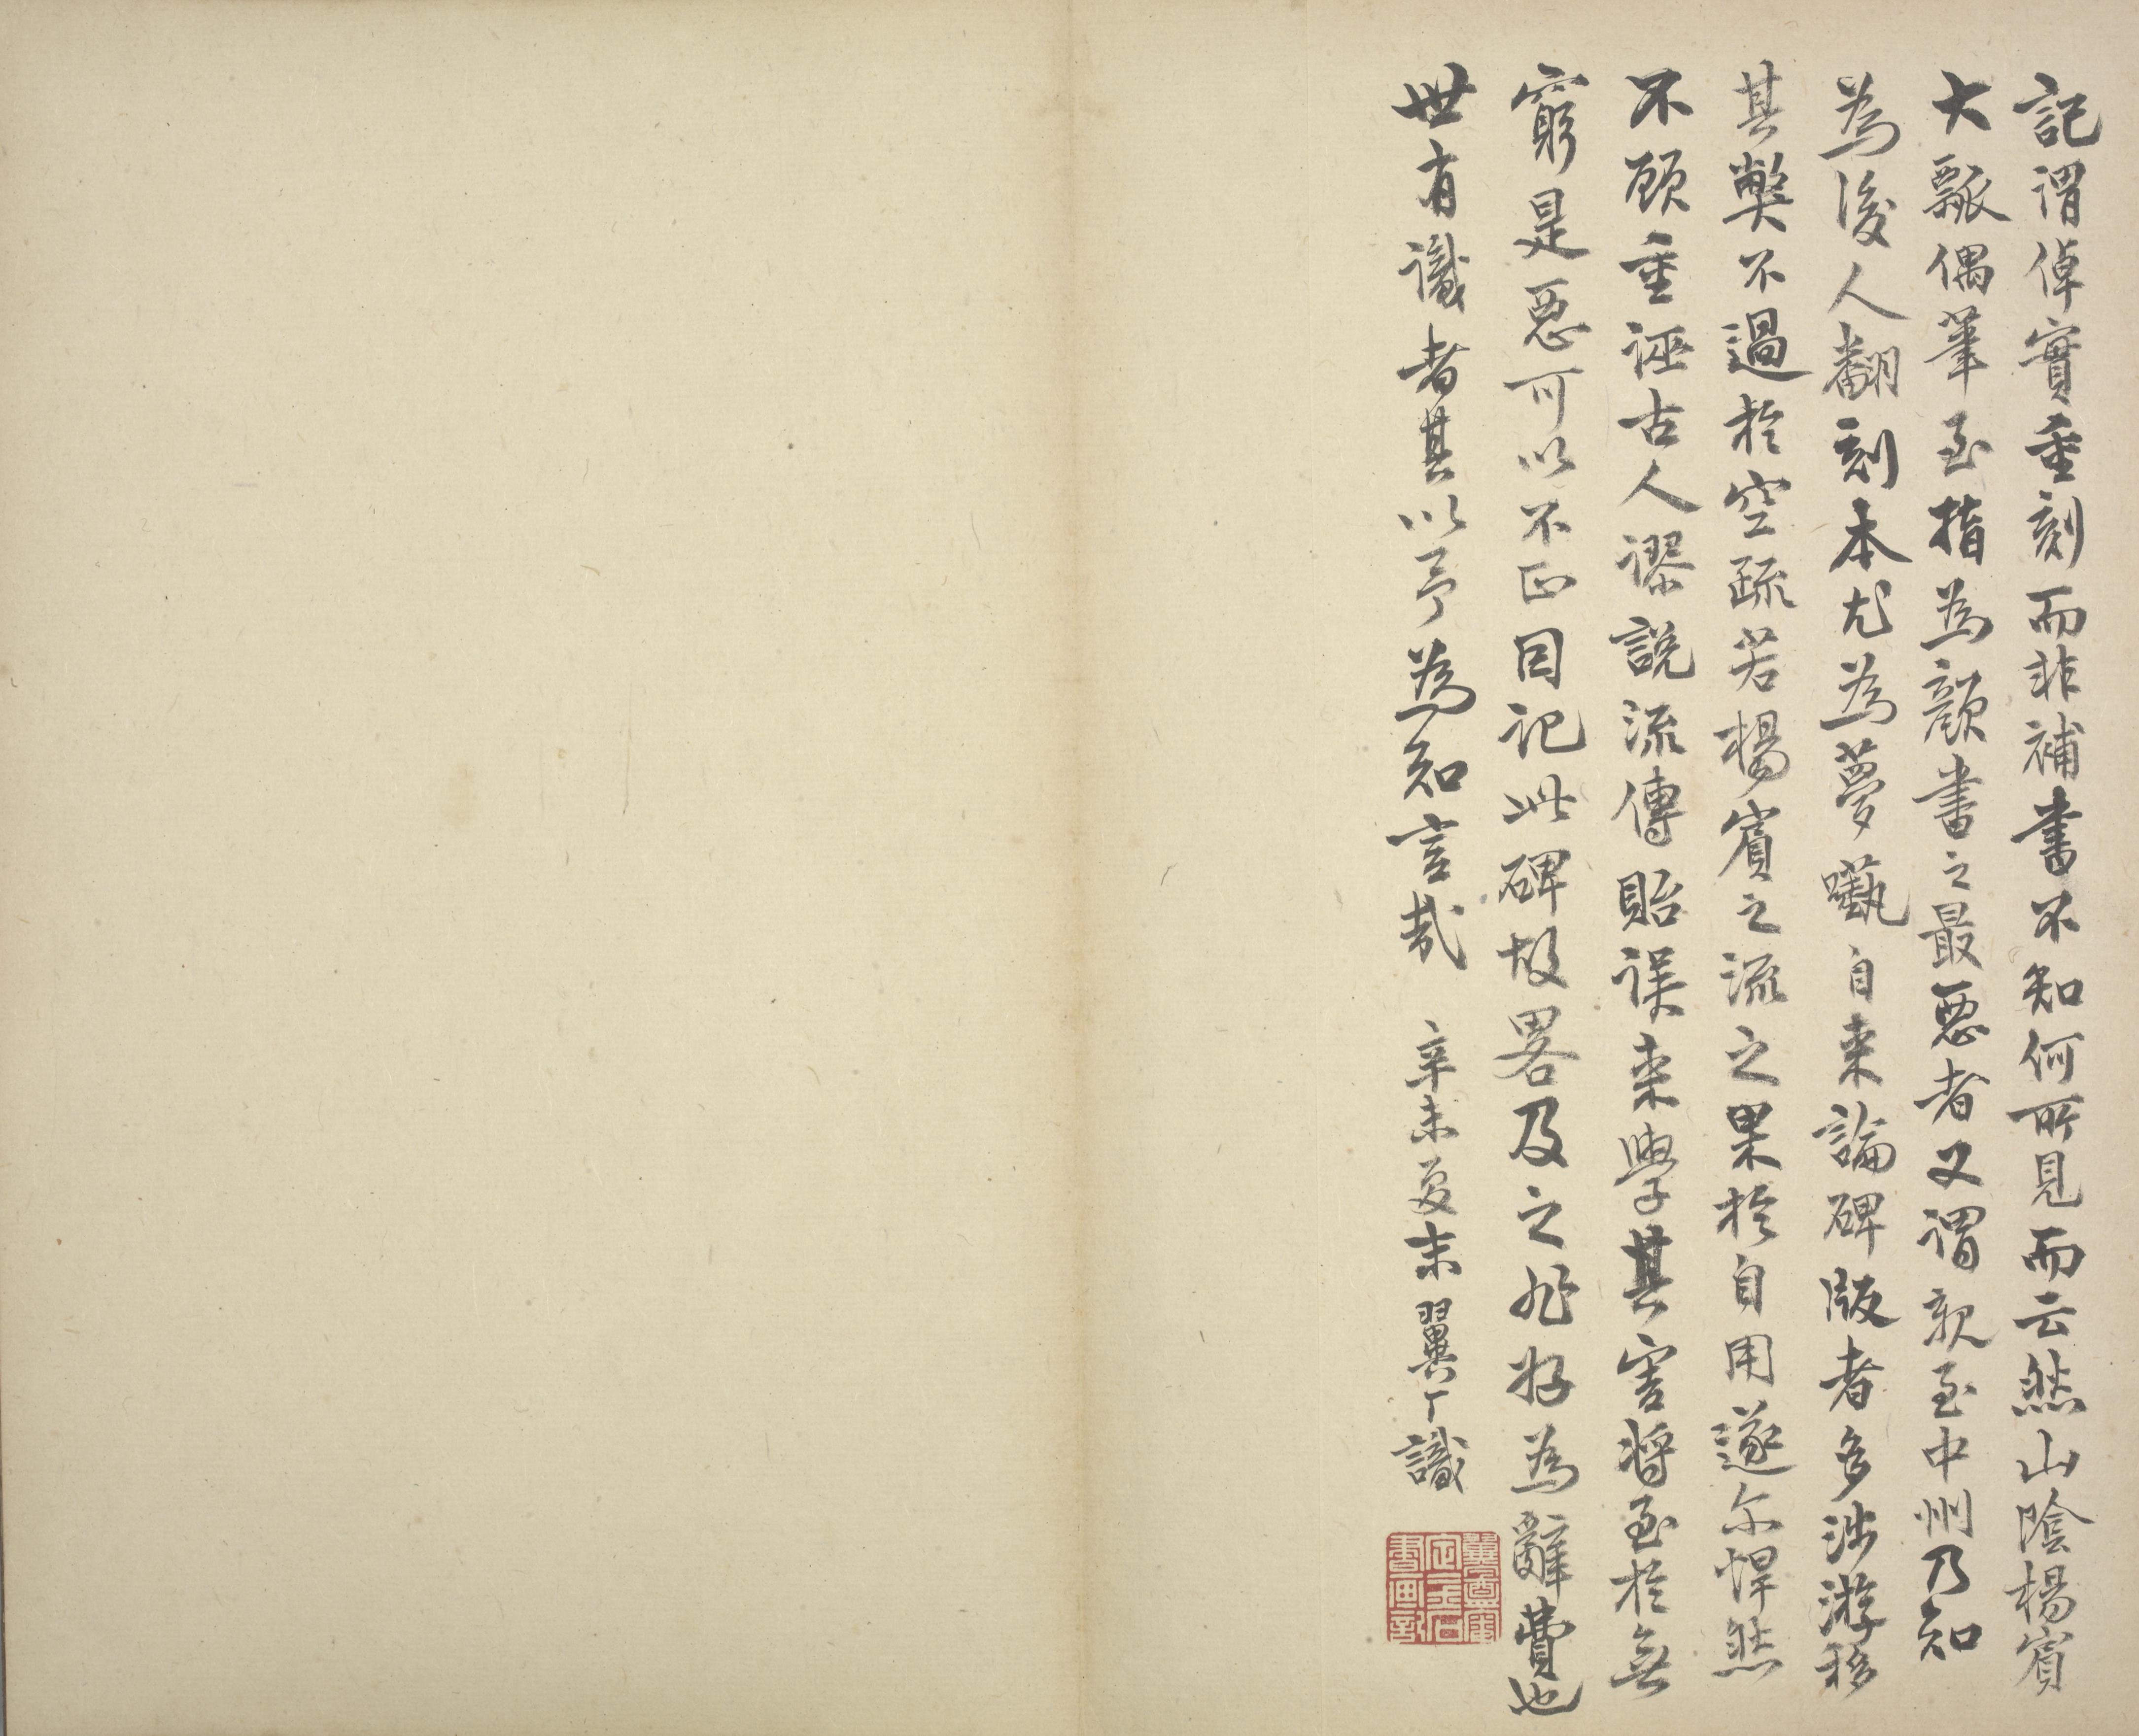 記謂倬實重刻而非補書不知何所見而云然山陰楊賓
大瓢偶筆至指為顏書之最惡者又謂親至中州乃知
為後人翻刻本尤為夢囈自來論碑版者多涉游移
其弊不過於空疏若楊賓之流之果於自用遂尔悍然
不顧重誣古人謬說流傳貽误来學其害將至於無
窮是惡可以不正因記此碑故畧及之非好為辭費也
世有識者其以予為知言哉 辛未夏末翼厂識